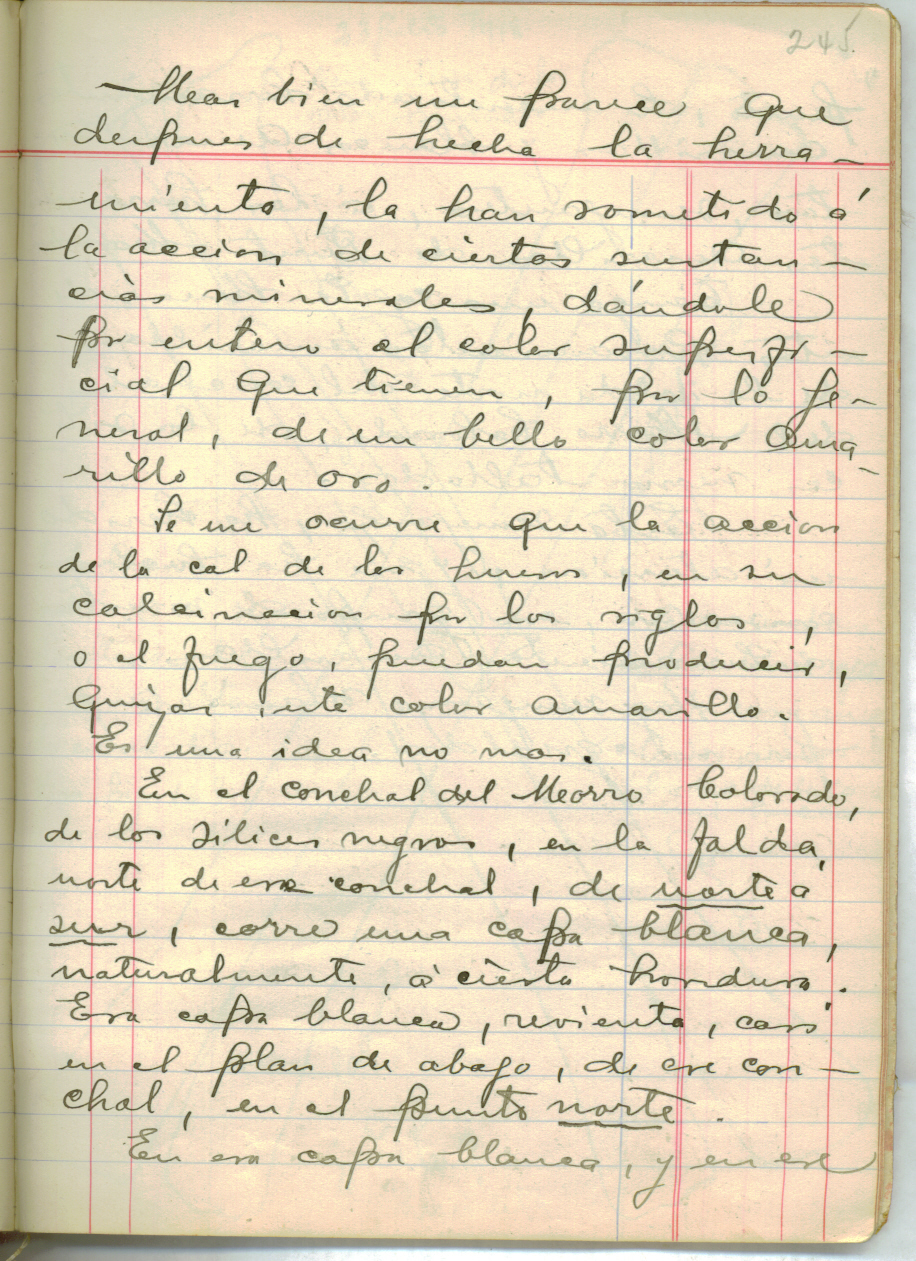 245.
Mas bien me parece que
despues de hecha la herra-
mienta, la han sometido á
la accion de ciertas sustan-
cias minerales, dándole
por entero el color superfi-
cial que tienen, por lo je-
neral, de un bello color ama-
rillo de oro.
Se me ocurre que la accion
de la cal de los huesos, en su
calcinacion por los siglos,
o el fuego, puedan producir,
quizas, este color amarillo.
Es una idea no mas.
En el conchal del Morro Colorado,
de los sílices negros, en la falda,
norte de ese conchal, de norte a
sur, corre una capa blanca,
naturalmente, á cierta hondura.
Esa capa blanca, revienta, casi
en el plan de abajo, de ese con-
chal, en el punto norte.
En esa capa blanca, y en ese